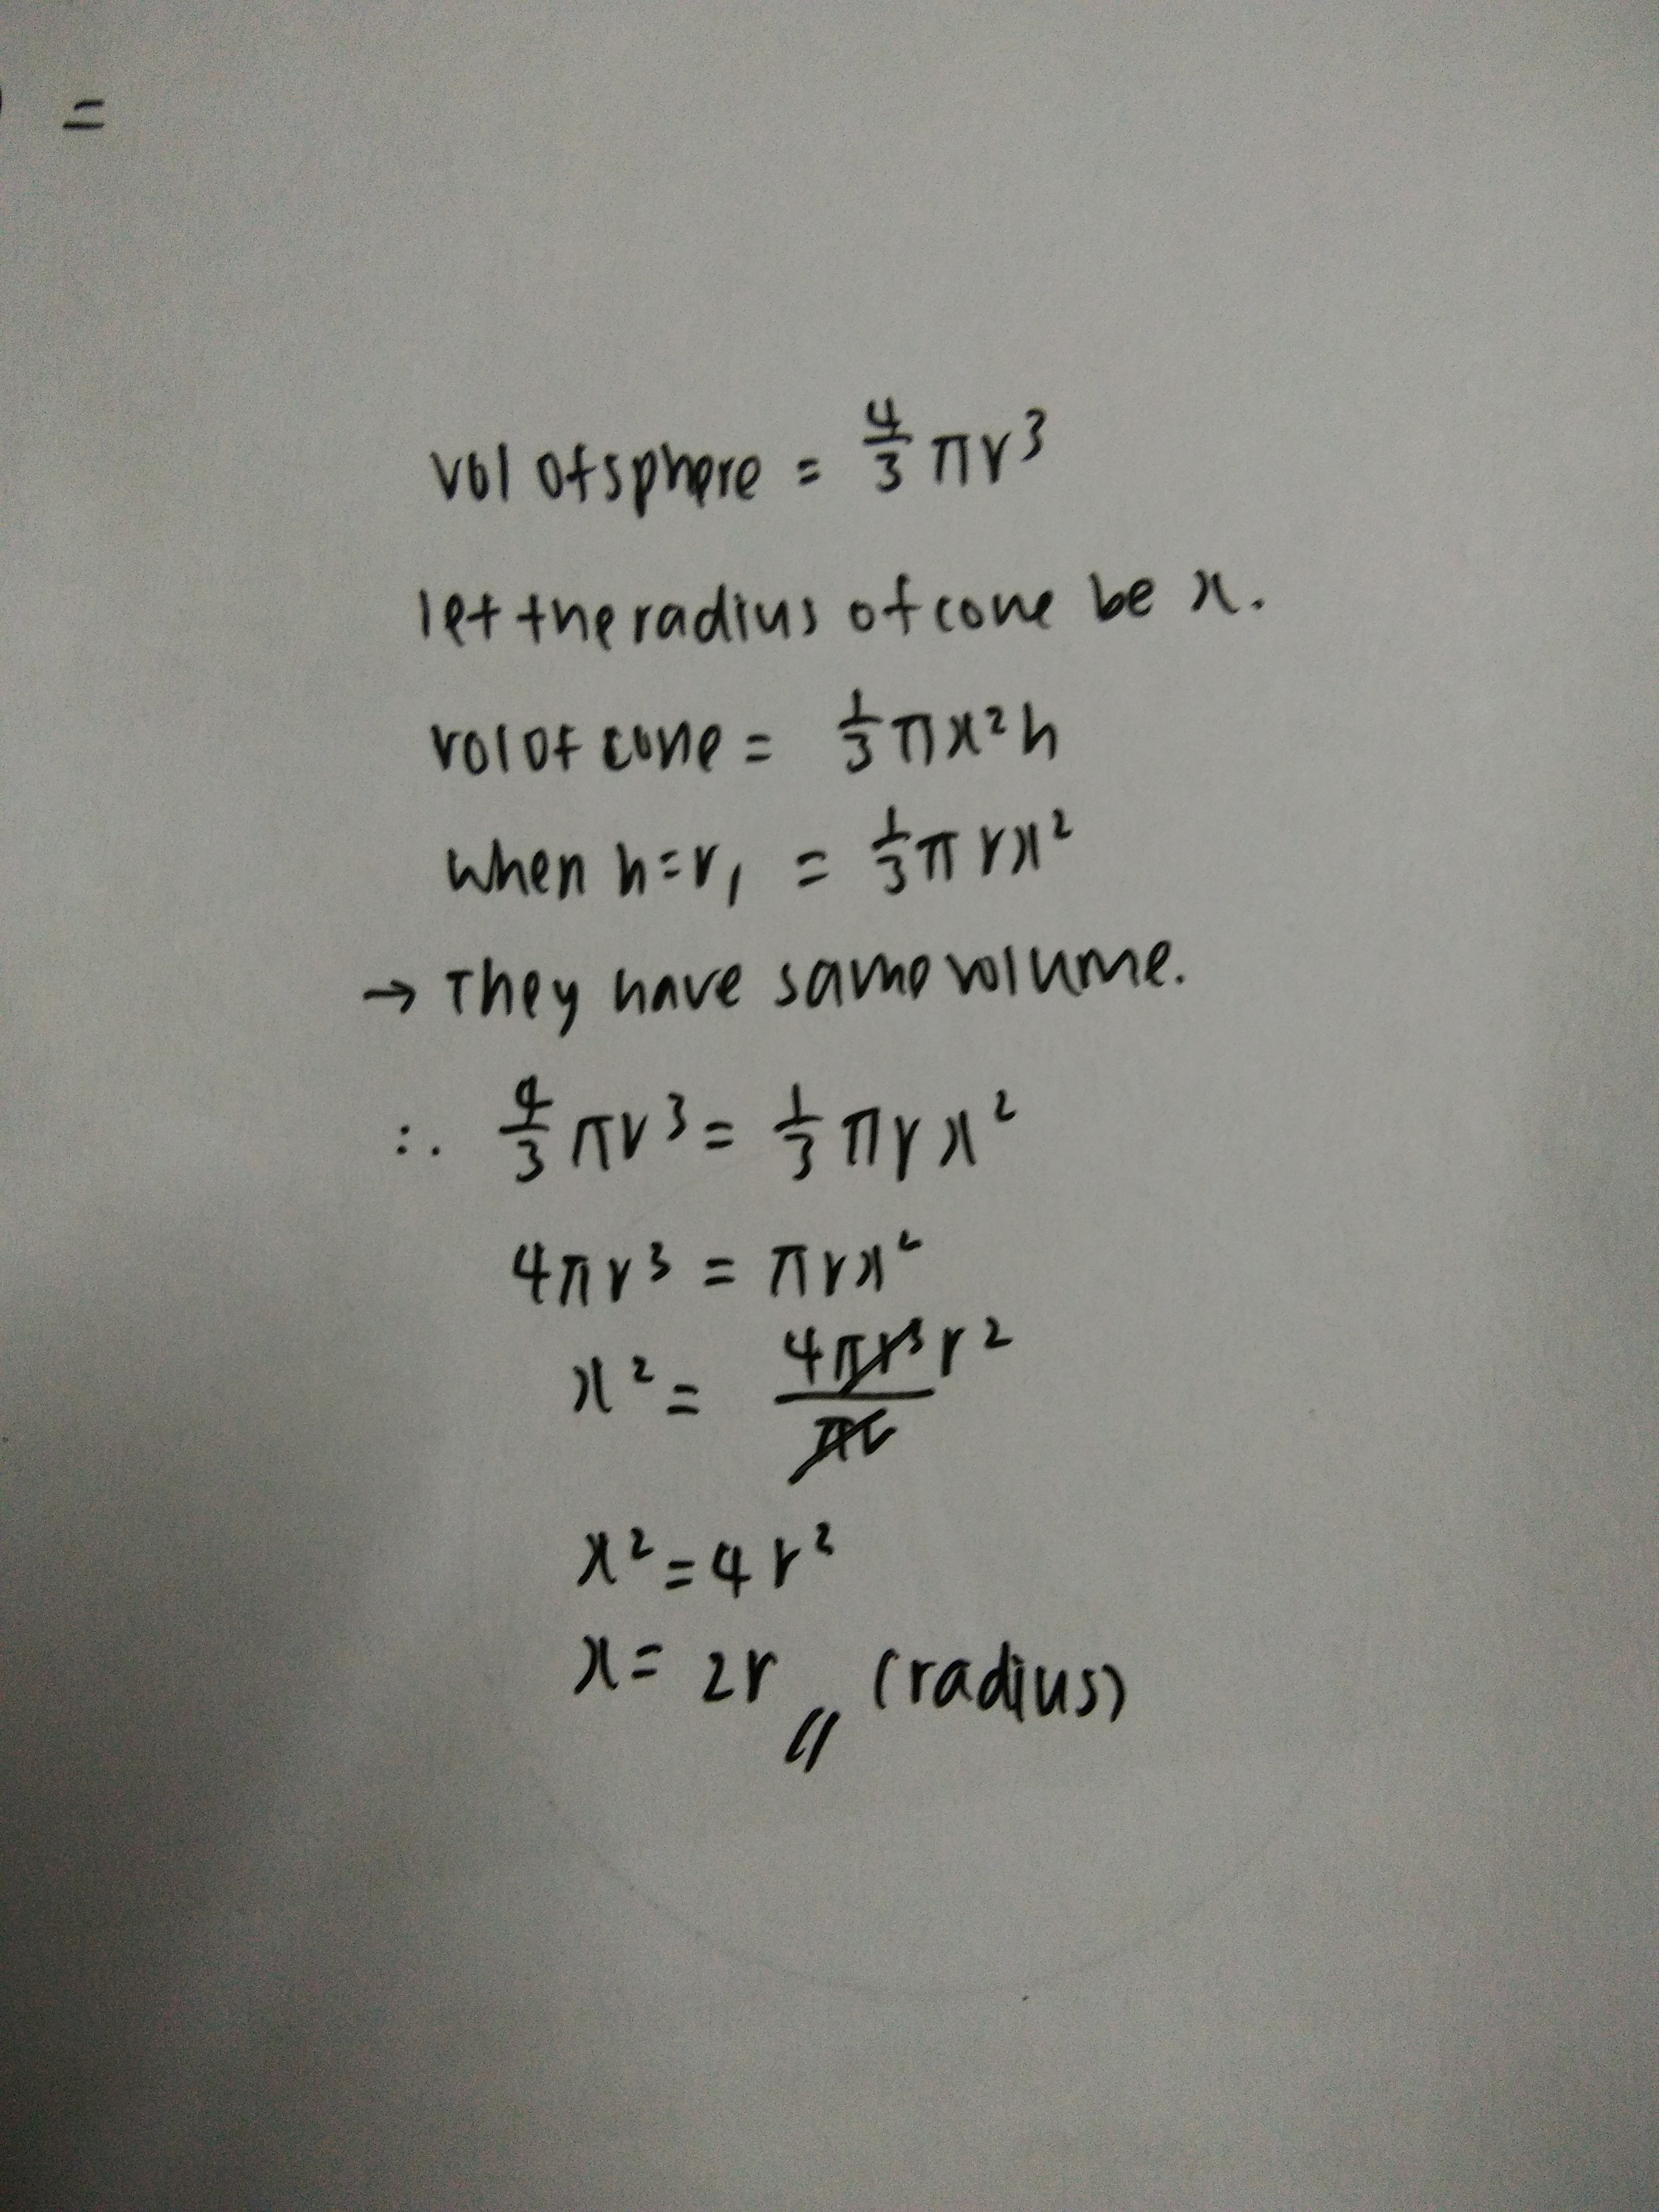 =
vol of sphere = 4/3 πr³
let the radius of cone be x.
vol of cone = 1/3 πx²h
when h=r, = 1/3 πrx²
→ They have same volume.
∴ 4/3 πr³ = 1/3 πrx²
4πr³ = πrx²
x² = 4πr³r² / πr
x² = 4r²
x = 2r // (radius)